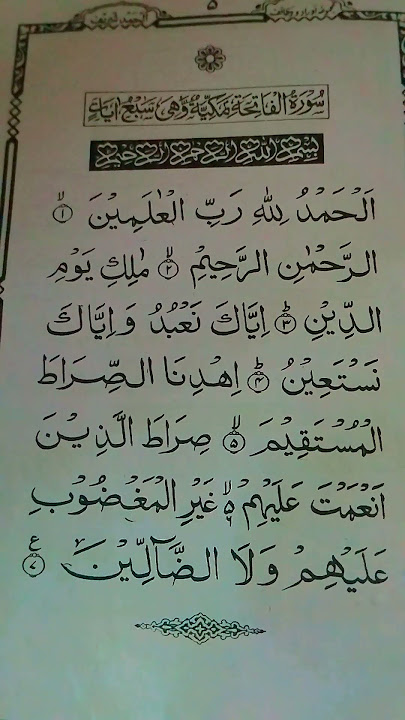 ٥
سُورَةُ الْفَاتِحَةِ مَكِّيَّةٌ وَّهِىَ سَبْعُ اٰيَاتٍ
بِسْمِ اللهِ الرَّحْمٰنِ الرَّحِيْمِ
اَلْحَمْدُ لِلّٰهِ رَبِّ الْعٰلَمِيْنَ ۙ﴿١﴾
الرَّحْمٰنِ الرَّحِيْمِ ۙ﴿٢﴾ مٰلِكِ يَوْمِ
الدِّيْنِ ؕ﴿٣﴾ اِيَّاكَ نَعْبُدُ وَ اِيَّاكَ
نَسْتَعِيْنُ ؕ﴿٤﴾ اِهْدِنَا الصِّرَاطَ
الْمُسْتَقِيْمَ ۙ﴿٥﴾ صِرَاطَ الَّذِيْنَ
اَنْعَمْتَ عَلَيْهِمْ ۙ۬ غَيْرِ الْمَغْضُوْبِ
عَلَيْهِمْ وَلَا الضَّآلِّيْنَ ﴿٧﴾ ع